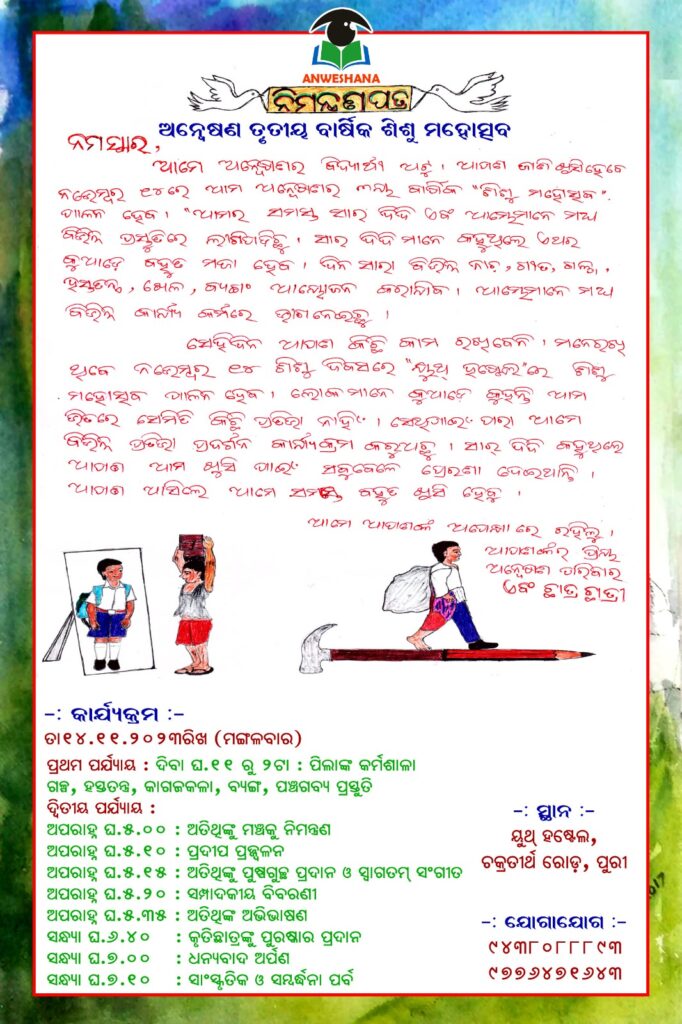 ANWESHANA
ନିମନ୍ତ୍ରଣପତ୍ର
ଅନ୍ୱେଷଣ ତୃତୀୟ ବାର୍ଷିକ ଶିଶୁ ମହୋତ୍ସବ
ନମସ୍କାର,
ଆମେ ଅନ୍ୱେଷଣର ବିଦ୍ୟାର୍ଥୀ ଅଟୁ । ଆପଣ ଜାଣି ଖୁସି ହେବେ
ନଭେମ୍ବର ୧୪ରେ ଆମ ଅନ୍ୱେଷଣର ୩ୟ ବାର୍ଷିକ "ଶିଶୁ ମହୋତ୍ସବ".
ପାଳନ ହେବ । ଆମର ସମସ୍ତ ସାର ଦିଦି ଏବଂ ଆମ୍ଭେମାନେ ମଧ୍ୟ
ବିଭିନ୍ନ ପ୍ରସ୍ତୁତିରେ ଲାଗିପଡିଛୁ । ସାର ଦିଦି ମାନେ କହୁଥିଲେ ଏଥର
କୁଆଡ଼େ ବହୁତ ମଜା ହେବ । ଦିନ ସାରା ବିଭିନ୍ନ ନାଚ, ଗୀତ, ଗଳ୍ପ,
ହସ୍ତତନ୍ତ, ଖେଳ, ବ୍ୟଙ୍ଗ ଆୟୋଜନ କରାଯିବ । ଆମ୍ଭେମାନେ ମଧ୍ୟ
ବିଭିନ୍ନ କାର୍ଯ୍ୟ କର୍ମରେ ଭାଗ ନେଇଛୁ ।
ସେହିଦିନ ଆପଣ କିଛି କାମ ରଖିବେନି । ମନେରଖି
ଥିବେ ନଭେମ୍ବର ୧୪ ଶିଶୁ ଦିବସରେ "ୟୁଥ୍ ହଷ୍ଟେଲ"ରେ ଶିଶୁ
ମହୋତ୍ସବ ପାଳନ ହେବ । ଲୋକମାନେ କୁଆଡ଼େ କୁହନ୍ତି ଆମ
ଭିତରେ ସେମିତି କିଛି ପ୍ରତିଭା ନାହିଁ । ସେଥିପାଇଁ ପରା ଆମେ
ବିଭିନ୍ନ ପ୍ରତିଭା ପ୍ରଦର୍ଶନ କାର୍ଯ୍ୟକ୍ରମ କରୁଅଛୁ । ସାର ଦିଦି କହୁଥିଲେ
ଆପଣ ଆମ ଖୁସି ପାଇଁ ସବୁବେଳେ ପ୍ରେରଣା ଦେଇଥାନ୍ତି ।
ଆପଣ ଆସିଲେ ଆମେ ସମସ୍ତେ ବହୁତ ଖୁସି ହେବୁ ।
ଆମେ ଆପଣଙ୍କ ଅପେକ୍ଷାରେ ରହିଲୁ ।
ଆପଣଙ୍କର ପ୍ରିୟ
ଅନ୍ୱେଷଣ ପରିବାର
ଏବଂ ଛାତ୍ର ଛାତ୍ରୀ
-: କାର୍ଯ୍ୟକ୍ରମ :-
ତା୧୪.୧୧.୨୦୨୩ରିଖ (ମଙ୍ଗଳବାର)
ପ୍ରଥମ ପର୍ଯ୍ୟାୟ : ଦିବା ଘ.୧୧ ରୁ ୨ଟା : ପିଲାଙ୍କ କର୍ମଶାଳା
ଗଳ୍ପ, ହସ୍ତତନ୍ତ, କାଗଜକଳା, ବ୍ୟଙ୍ଗ, ପଞ୍ଚଗବ୍ୟ ପ୍ରସ୍ତୁତି
ଦ୍ୱିତୀୟ ପର୍ଯ୍ୟାୟ :
ଅପରାହ୍ନ ଘ.୫.୦୦ : ଅତିଥିଙ୍କୁ ମଞ୍ଚକୁ ନିମନ୍ତଣ
ଅପରାହ୍ନ ଘ.୫.୧୦ : ପ୍ରଦୀପ ପ୍ରଜ୍ଜ୍ୱଳନ
ଅପରାହ୍ନ ଘ.୫.୧୫ : ଅତିଥିଙ୍କୁ ପୁଷ୍ପଗୁଚ୍ଛ ପ୍ରଦାନ ଓ ସ୍ୱାଗତମ୍ ସଂଗୀତ
ଅପରାହ୍ନ ଘ.୫.୨୦ : ସମ୍ପାଦକୀୟ ବିବରଣୀ
ଅପରାହ୍ନ ଘ.୫.୩୫ : ଅତିଥିଙ୍କ ଅଭିଭାଷଣ
ସନ୍ଧ୍ୟା ଘ.୬.୪୦ : କୃତିଛାତ୍ରଙ୍କୁ ପୁରଷ୍କାର ପ୍ରଦାନ
ସନ୍ଧ୍ୟା ଘ.୭.୦୦ : ଧନ୍ୟବାଦ ଅର୍ପଣ
ସନ୍ଧ୍ୟା ଘ.୭.୧୦ : ସାଂସ୍କୃତିକ ଓ ସମ୍ବର୍ଦ୍ଧନା ପର୍ବ
-: ସ୍ଥାନ :-
ୟୁଥ୍ ହଷ୍ଟେଲ,
ଚକ୍ରତୀର୍ଥ ରୋଡ଼, ପୁରୀ
-: ଯୋଗାଯୋଗ :-
୯୪୩୮୦୮୮୮୯୩
୯୭୭୬୪୭୧୬୪୩